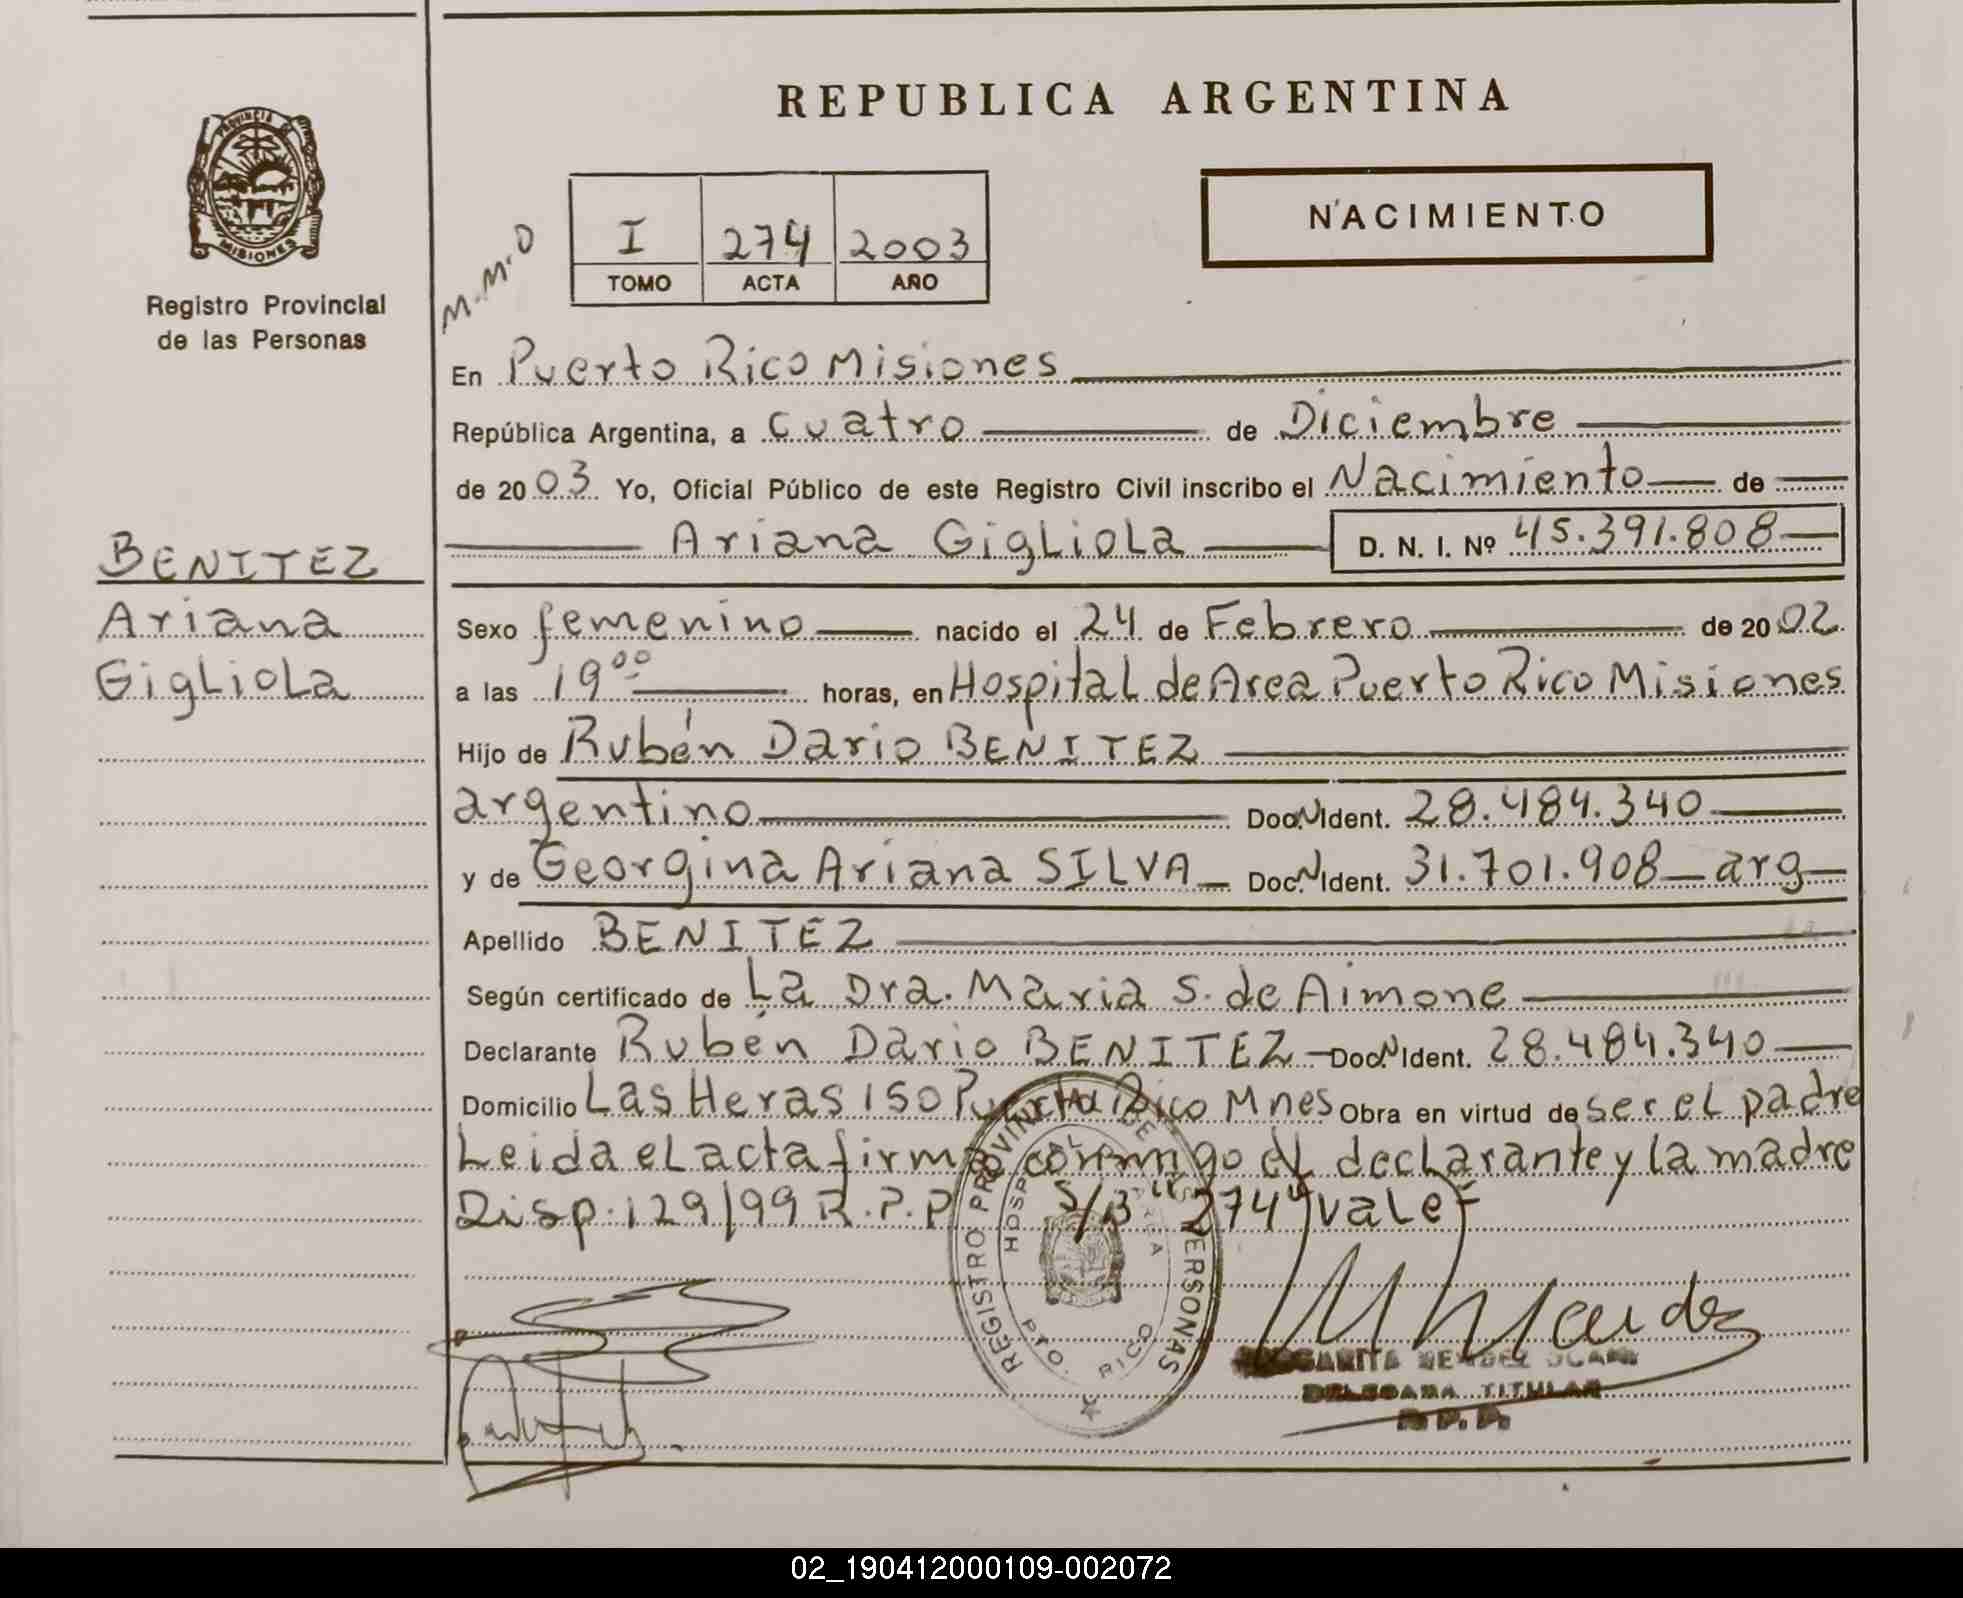 REPUBLICA ARGENTINA
PROVINCIA DE
MISIONES
Registro Provincial
de las Personas
M.M.O
I 274 2003
TOMO ACTA AÑO
NACIMIENTO
En Puerto Rico Misiones
República Argentina, a cuatro de Diciembre
de 2003 Yo, Oficial Público de este Registro Civil inscribo el Nacimiento de
Ariana Gigliola D. N. I. Nº 45.391.808
BENITEZ
Ariana
Gigliola
Sexo femenino nacido el 24 de Febrero de 2002
a las 19⁰⁰ horas, en Hospital de Area Puerto Rico Misiones
Hijo de Rubén Dario BENITEZ
argentino Doc. N Ident. 28.484.340
y de Georgina Ariana SILVA Doc. N Ident. 31.701.908 arg
Apellido BENITEZ
Según certificado de La Dra. Maria S. de Aimone
Declarante Rubén Dario BENITEZ Doc. N Ident. 28.484.340
Domicilio Las Heras 150 Puerto Rico Mnes Obra en virtud de ser el padre
Leida el acta firma conmigo el declarante y la madre
Disp. 129/99 R.P.P S/B "274" vale
REGISTRO PROVINCIAL DE LAS PERSONAS
HOSPITAL AREA
PTO. RICO
DELEGADA TITULAR
R.P.P.
02_190412000109-002072